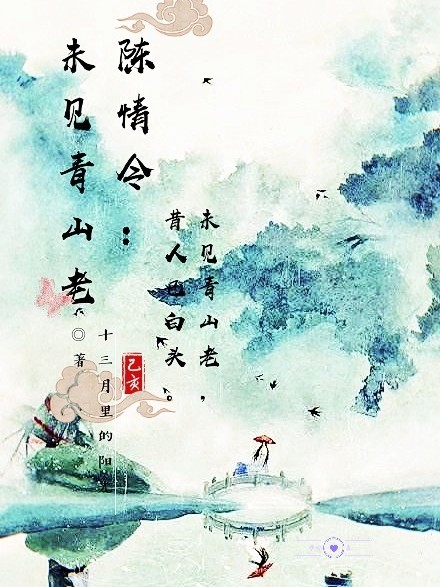 陈情令：
未见青山老
未见青山老，
昔人已白头。
十三月里的阳
◎著
己亥